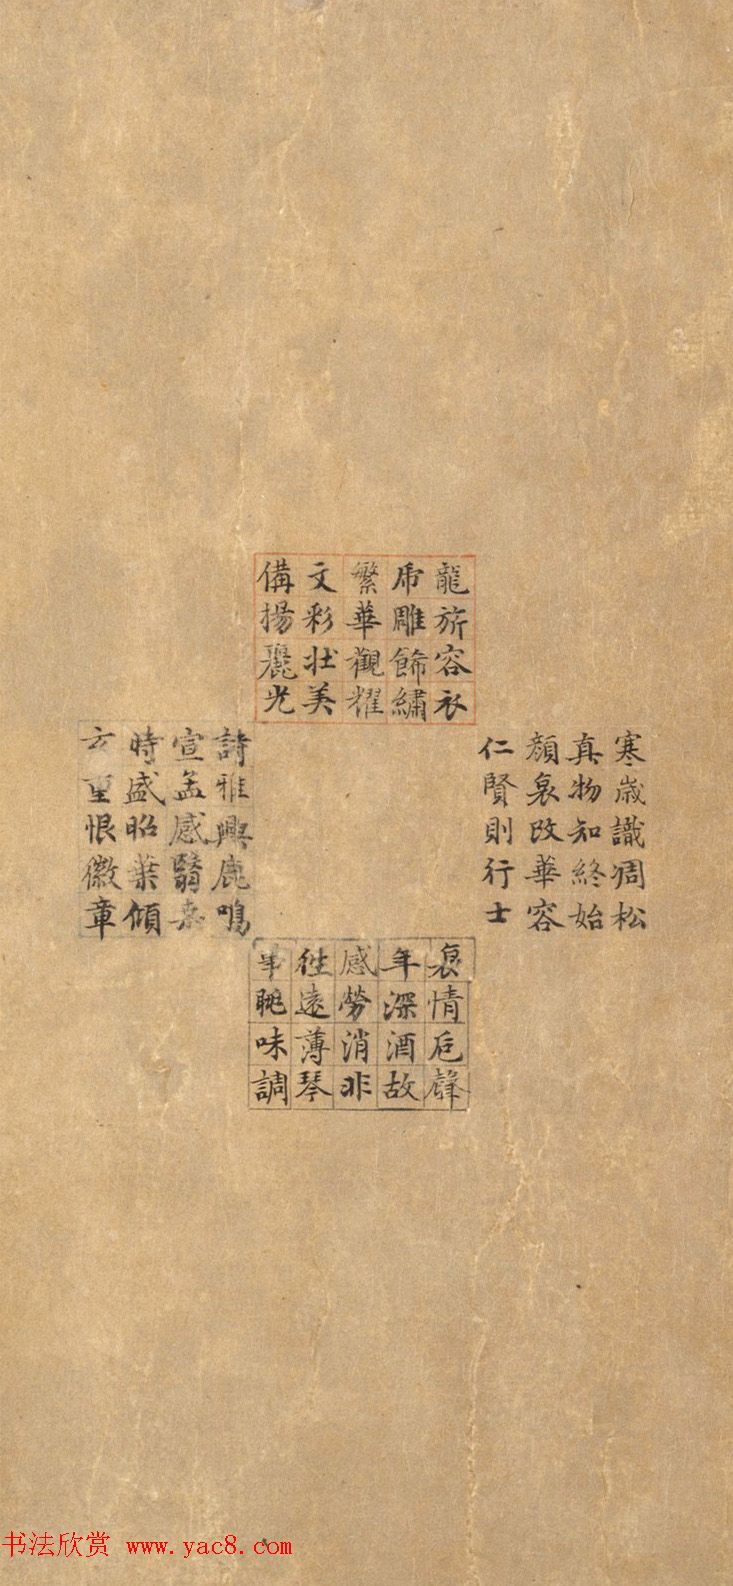 龍旂容衣
虎雕飾繡
繁華觀耀
文彩壯美
備揚麗光
寒歲識凋松
真物知終始
顏衰改華容
仁賢則行士
詩雅興鹿鳴
宣孟感翳桑
時盛昭業傾
玄重恨徽章
哀情卮聲
年深酒故
感勞消非
往遠薄琴
眺味調
书法欣赏 www.yac8.com